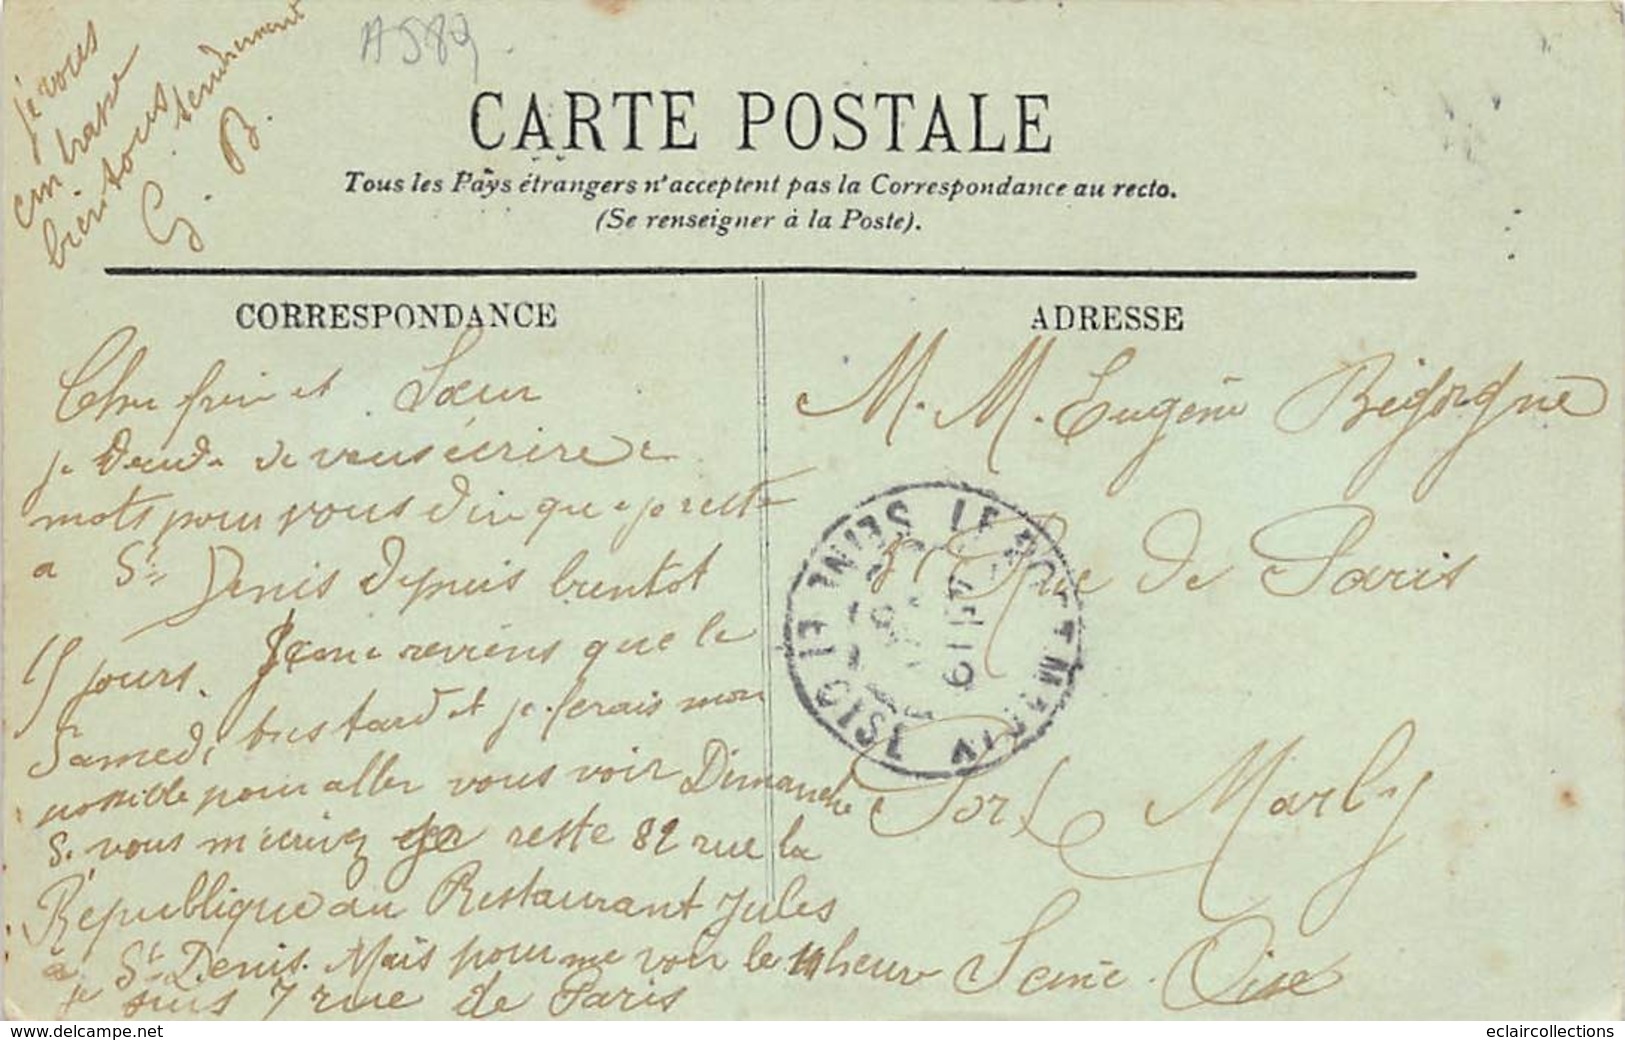 A589
je vous
embrasse
bien tous tendrement
G. B.
CARTE POSTALE
Tous les Pays étrangers n'acceptent pas la Correspondance au recto.
(Se renseigner à la Poste).
CORRESPONDANCE
ADRESSE
Cher frère et Sœur
je de vous écrire 2
mots pour vous dire que je reste
a St Denis depuis bientot
15 jours. reviens que le
Samedi tard et je ferais mon
possible pour aller vous voir Dimanche
Si vous m'écrivez je reste 82 rue la
République au Restaurant Jules
a St Denis. Mais pour me voir le heure
je suis 7 rue de Paris
M. M. Eugène Bigorgne
Rue de Paris
Port Marly
Seine. Oise
LE PORT MARLY
SEINE ET OISE
www.delcampe.net
eclaircollections